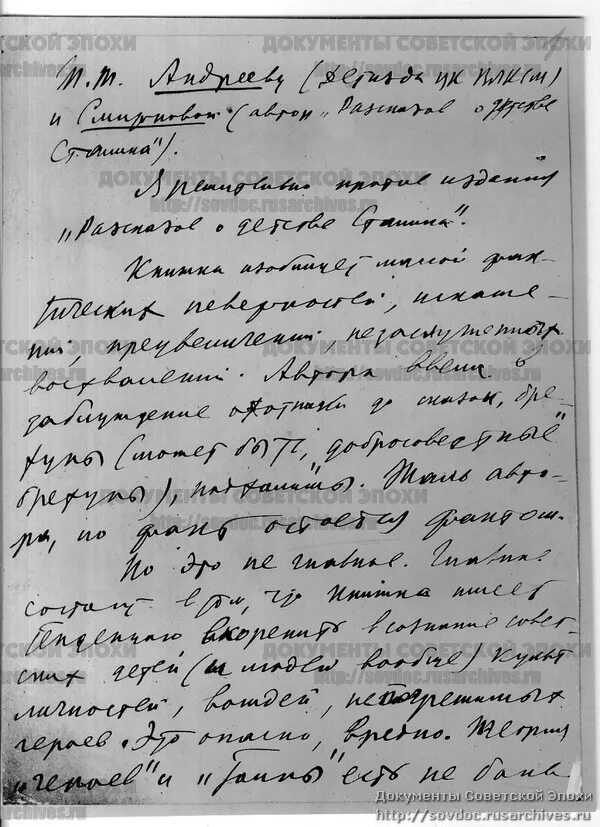 Т.т. Андрееву (Детиздат ЦК ВЛКСМ)
и Смирновой (автору „Рассказов о детстве
Сталина").
Я решительно против издания
„Рассказов о детстве Сталина".
Книжка изобилует массой фак-
тических неверностей, искаже-
ний, преувеличений, незаслуженных
восхвалений. Автора ввели в
заблуждение охотники до сказок, бре-
хуны (может быть, „добросовестные"
брехуны), подхалимы. Жаль авто-
ра, но факт остается фактом.
Но это не главное. Главное
состоит в том, что книжка имеет
тенденцию вкоренить в сознание совет-
ских детей (и людей вообще) культ
личностей, вождей, непогрешимых
героев. Это опасно, вредно. Теория
„героев" и „толпы" есть не боль-
ДОКУМЕНТЫ СОВЕТСКОЙ ЭПОХИ
http://sovdoc.rusarchives.ru
Документы Советской Эпохи
http://sovdoc.rusarchives.ru